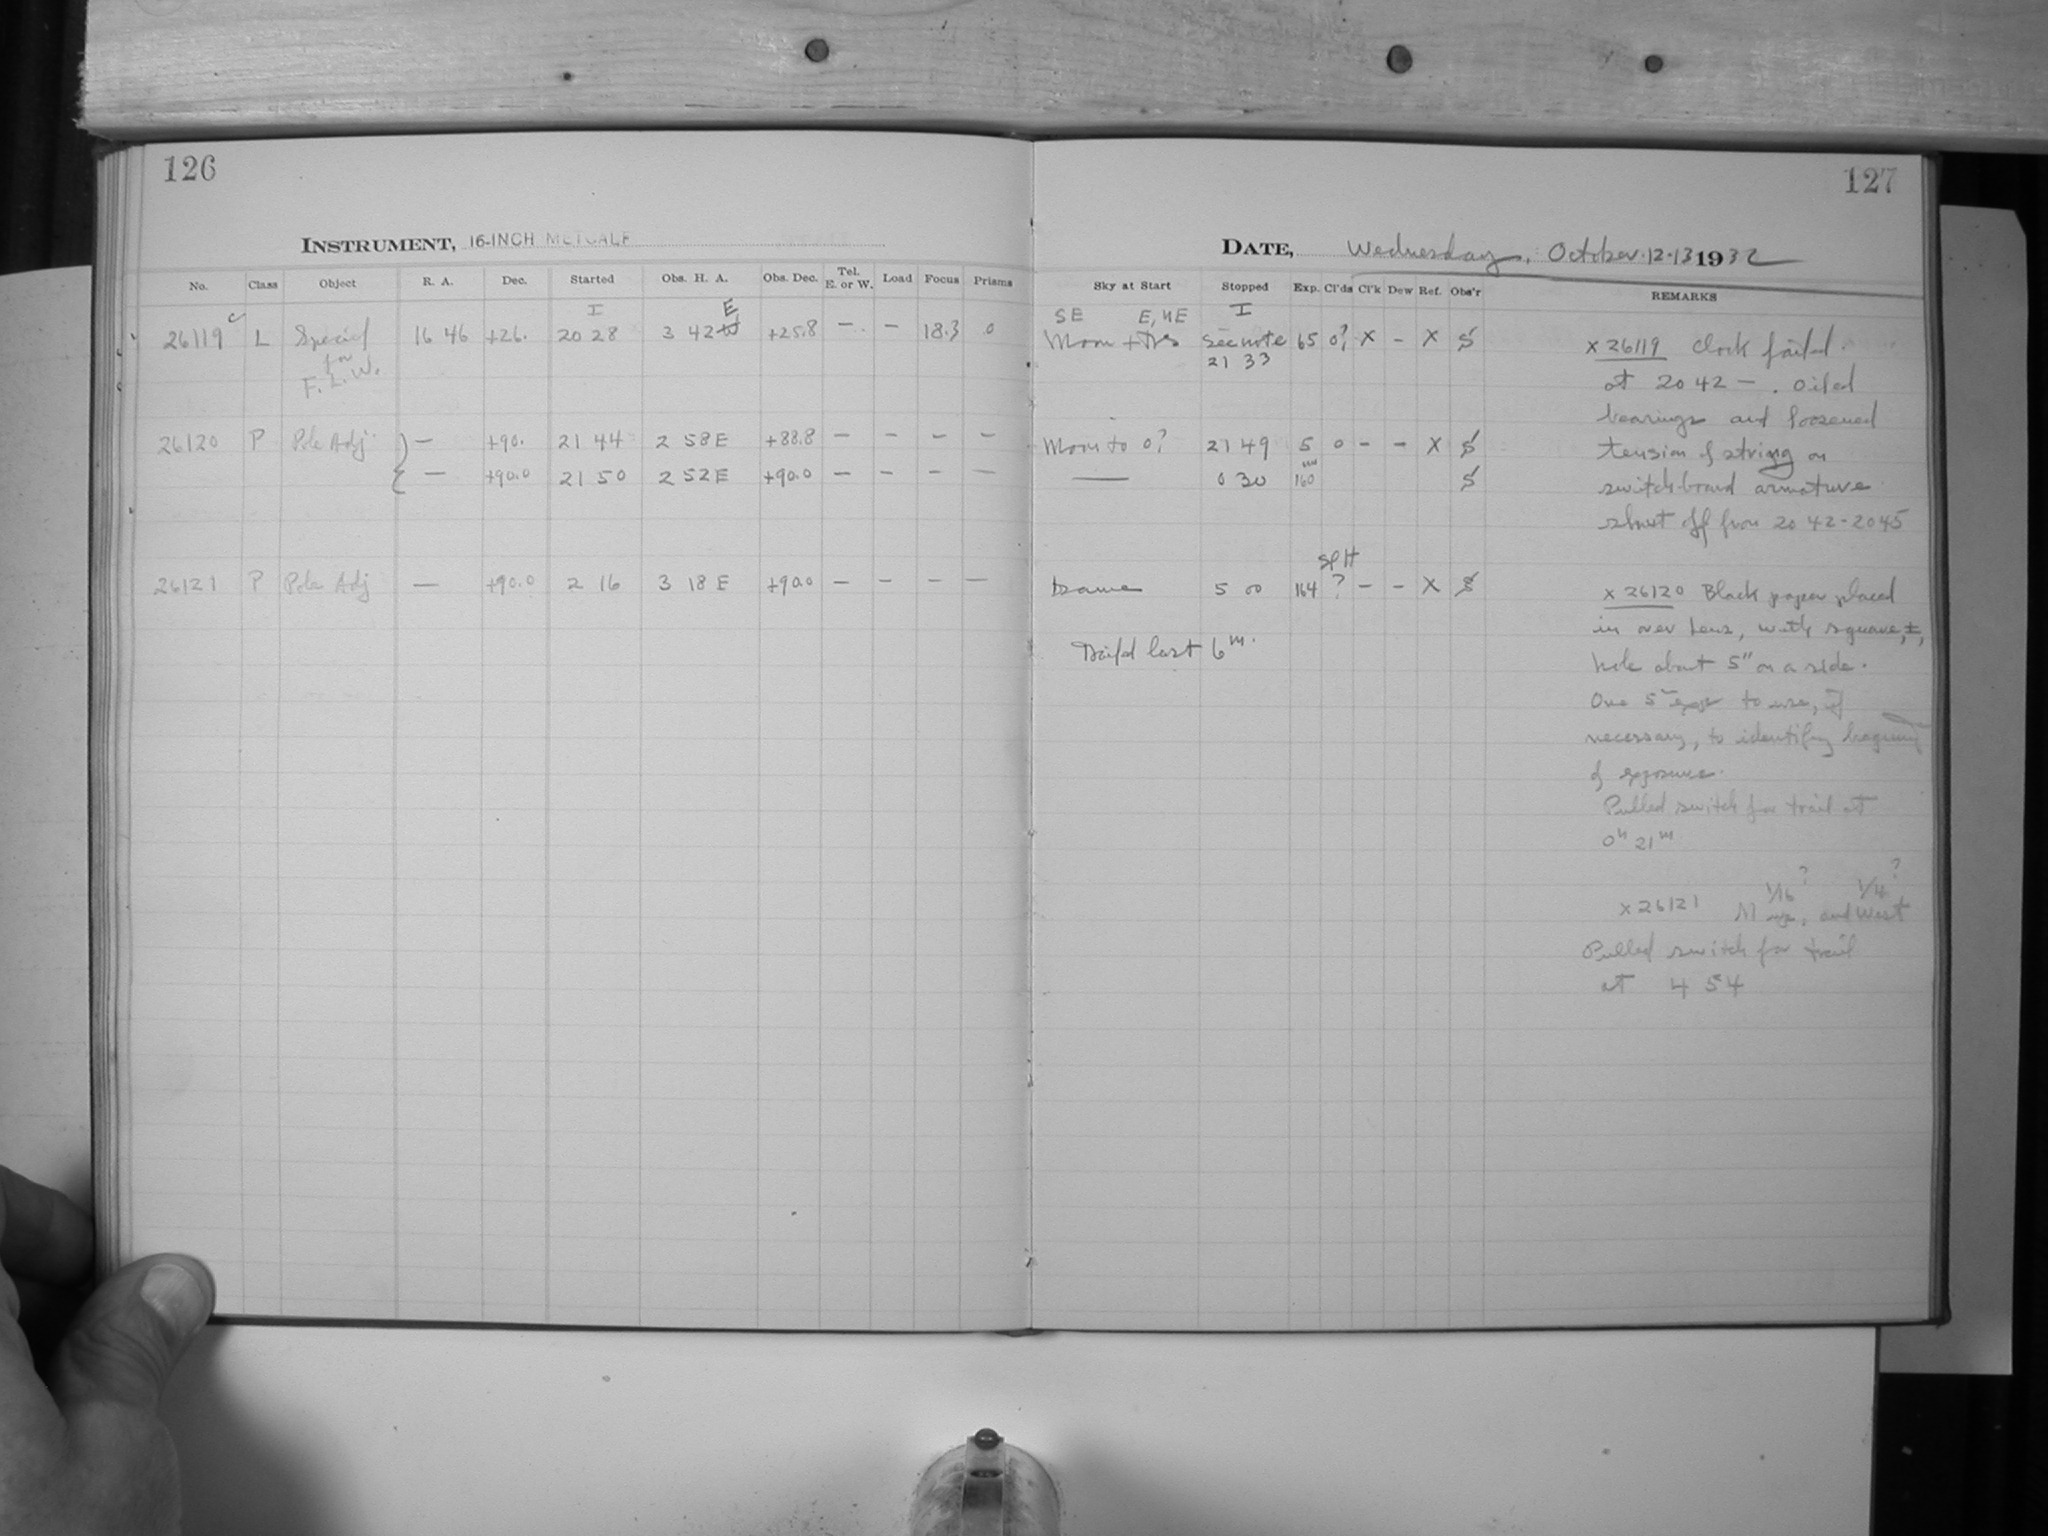 126
INSTRUMENT, 16-INCH METCALF
No. Class Object R. A. Dec. Started Obs. H. A. Obs. Dec. Tel. E. or W. Load Focus Prisms
I E
26119 c L Special 16 46 +26. 20 28 3 42 +25.8 — — 18.3 0
for
F. L. W.
26120 P Pole Adj. — +90. 21 44 2 58 E +88.8 — — — —
— +90.0 21 50 2 52 E +90.0 — — — —
26121 P Pole Adj — +90.0 2 16 3 18 E +90.0 — — — —
127
DATE, Wednesday, October 12-13 1932
Sky at Start Stopped Exp. Cl'ds Cl'k Dew Ref. Obs'r REMARKS
SE E, NE I
Moon + see note 65 0? X – X S
21 33
Moon to 0? 21 49 5 0 – – X S
— 0 30 160 S
SPH
Same 5 00 164 ? – – X S
Trail'd last 6m.
x 26119 Clock failed.
at 20 42 – . Oiled
bearings and loosened
tension of string on
switchboard armature
shut off from 20 42 - 20 45
x 26120 Black paper placed
in over lens, with square, ±,
hole about 5" on a side.
One 5m expr to use, if
necessary, to identify beginning
of exposure.
Pulled switch for trail at
0h 21m
1/16? 1/4?
x 26121 and West
Pulled switch for trail
at 4 54